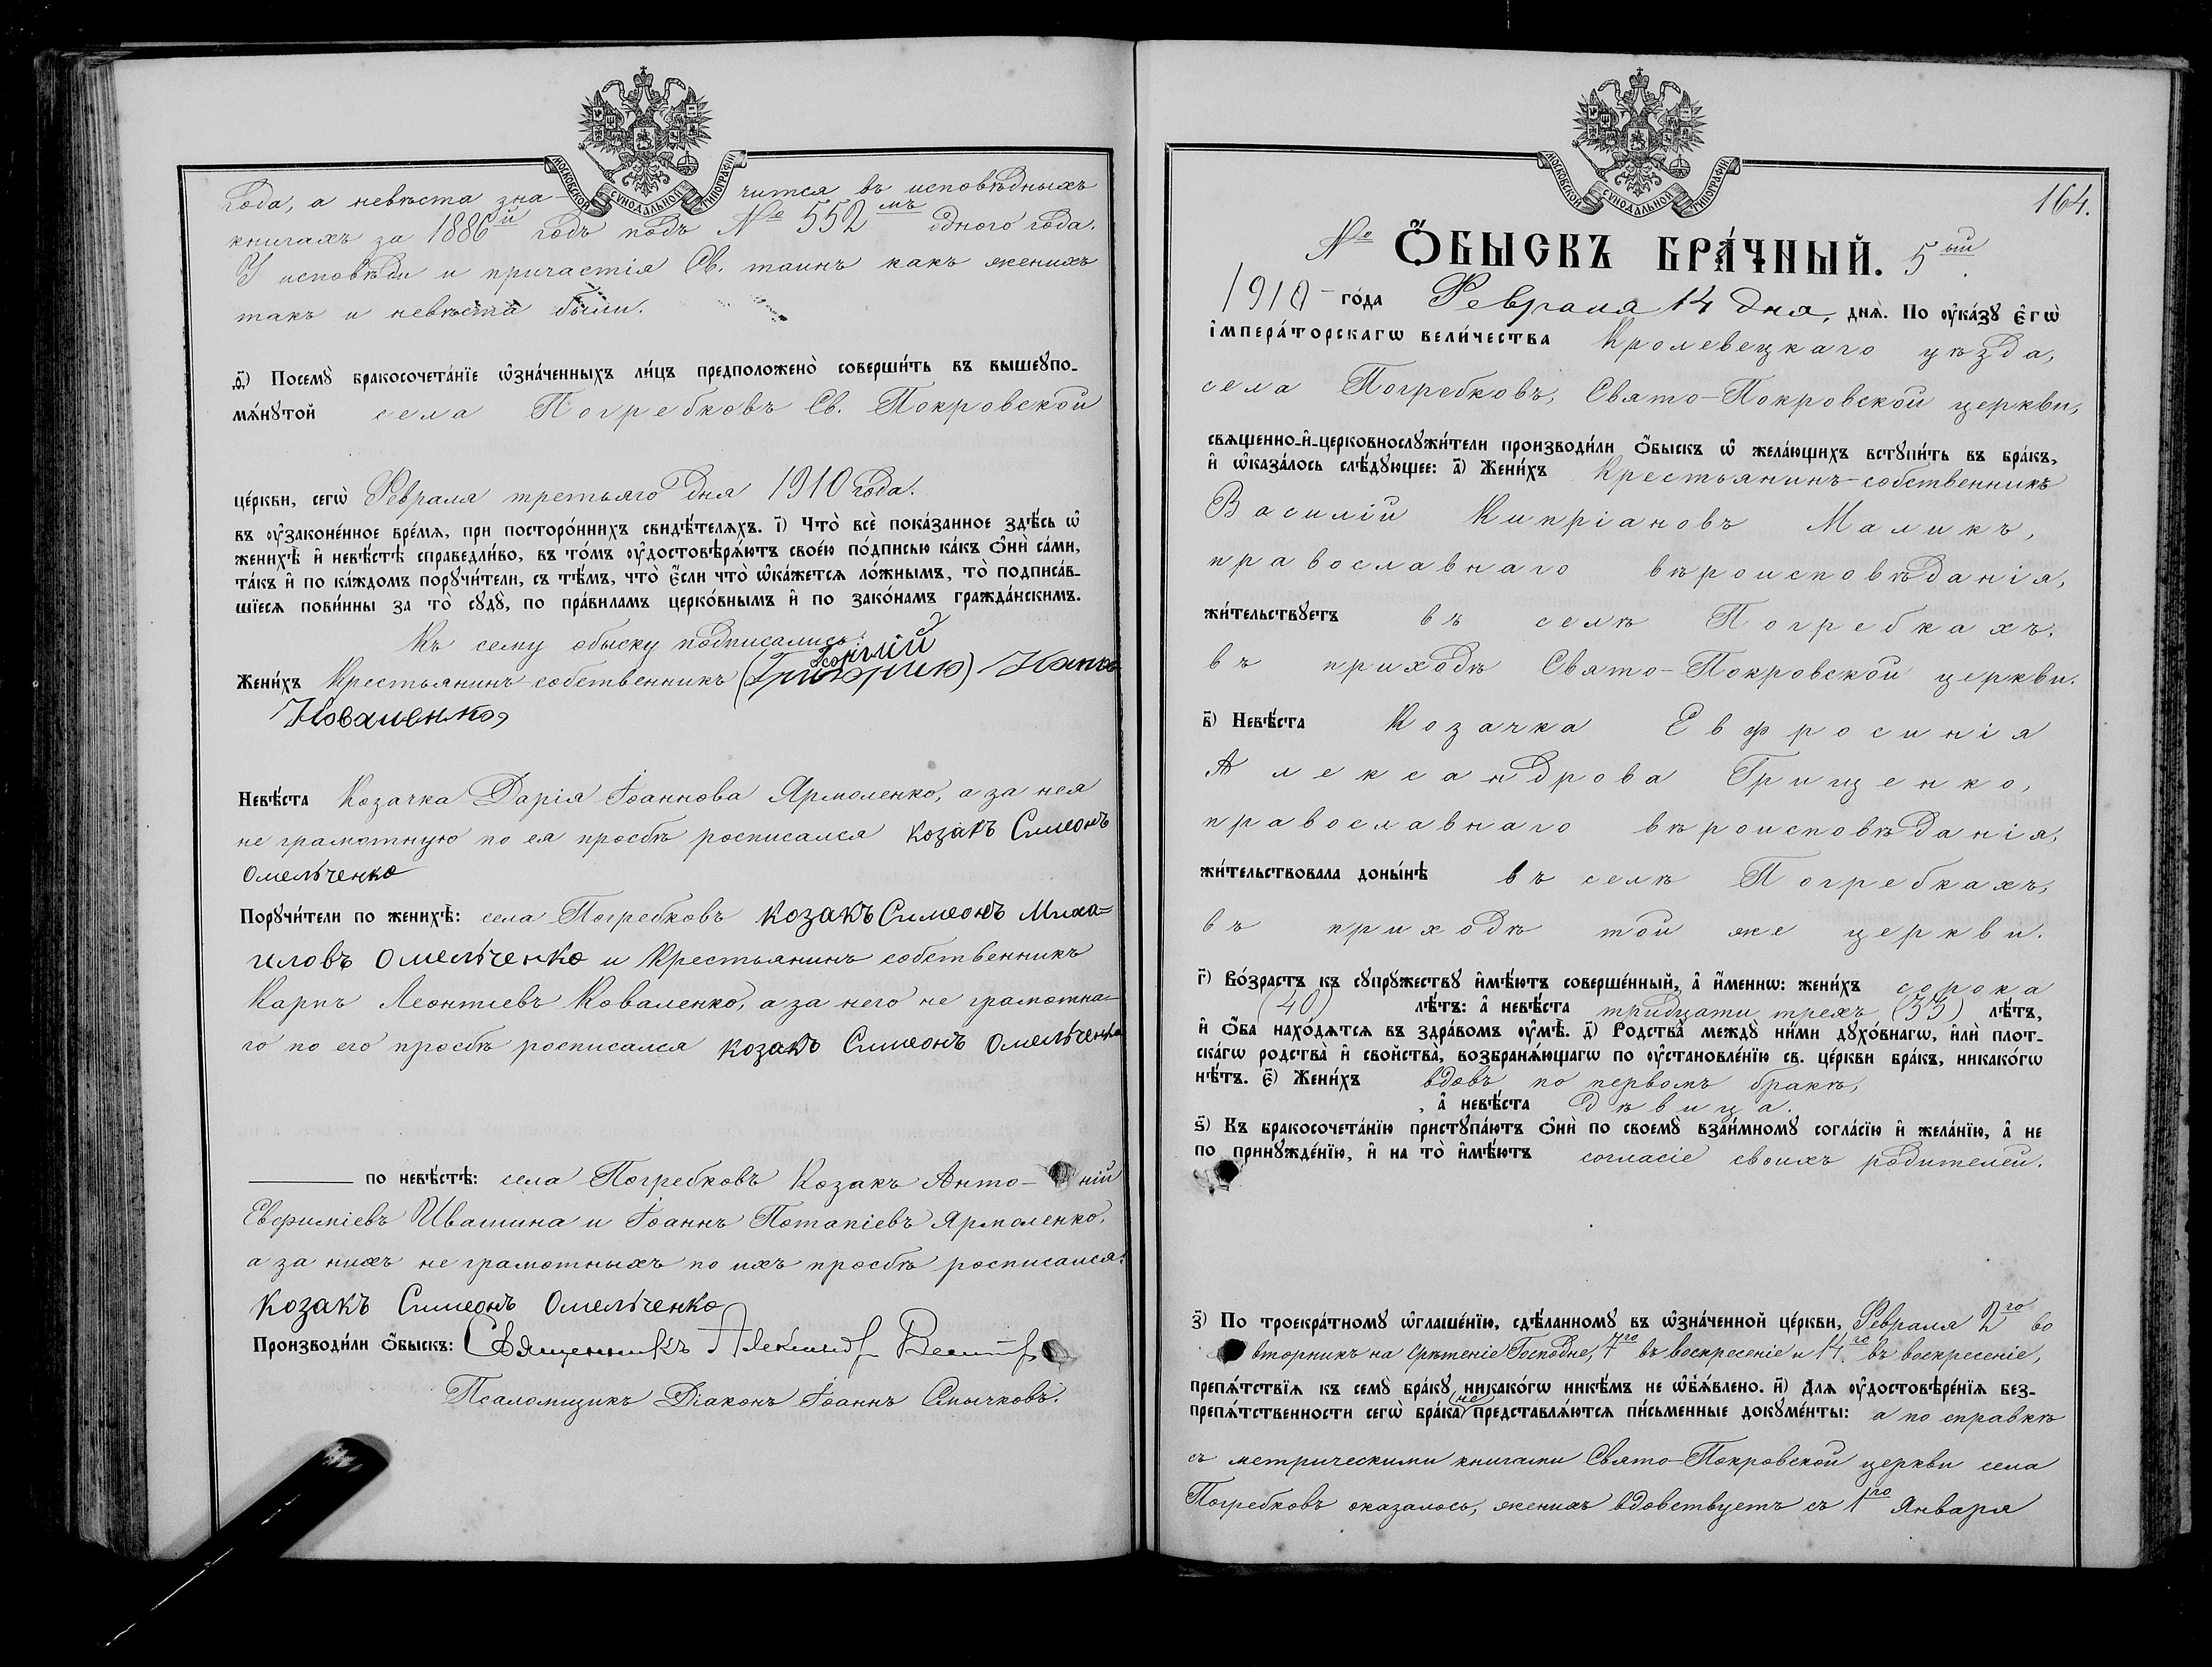 МОСКОВСКОЙ СѴНОДАЛЬНОЙ ТИПОГРАФІИ
года, а невѣста зна- чится въ исповѣдныхъ
книгахъ за 1886й годъ подъ № 552мъ одного года.
У исповѣди и причастія Св. таинъ какъ женихъ
такъ и невѣста были.
Посемꙋ̀ бракосочета́нїе ѡ҆зна́ченныхъ ли́цъ предположено̀ соверши́ть въ вышеꙋпо-
мѧ́нꙋтой села Погребковъ Св. Покровской
це́ркви, сегѡ̀ Февраля третьяго дня 1910 года.
въ ᲂу҆законе́нное вре́мѧ, при посторо́ннихъ свидѣ́телѧхъ. і҃) Что̀ всѐ пока́занное здѣ́сь ѡ҆
женихѣ̀ и҆ невѣ́стѣ справедли́во, въ то́мъ ᲂу҆достовѣрѧ́ютъ свое́ю по́дписью ка́къ ѻ҆нѝ са́ми,
та́къ и҆ по ка́ждомъ порꙋчи́тели, съ тѣ́мъ, что̀ є҆́сли что̀ ѡ҆ка́жетсѧ ло́жнымъ, то̀ подписа́в-
шїесѧ пови́нны за то̀ сꙋдꙋ̀, по пра́виламъ церко́внымъ и҆ по зако́намъ гражда́нскимъ.
Къ сему обыску подписались:
Жени́хъ Крестьянинъ-собственникъ
Коваленко,
Невѣ́ста Козачка Дарія Іоаннова Ярмоленко, а за нея
не грамотную по ея просьбѣ росписался козакъ Симеонъ
Омельченко
Порꙋчи́тели по женихѣ̀: села Погребковъ козакъ Симеонъ Миха=
иловъ Омельченко и Крестьянинъ собственникъ
Карпъ Леонтіевъ Коваленко, а за него не грамотна-
го по его просьбѣ росписался козакъ Симеонъ Омельченко
по невѣ́стѣ: села Погребковъ Козакъ Анто- ній
Евѳиміевъ Ивашина и Іоаннъ Потапіевъ Ярмоленко,
а за нихъ не грамотныхъ по ихъ просьбѣ росписался:
козакъ Симеонъ Омельченко
Производи́ли ѻ҆́быскъ: Священникъ
Псаломщикъ Діаконъ Іоаннъ Смычковъ.
МОСКОВСКОЙ СѴНОДАЛЬНОЙ ТИПОГРАФІИ
164.
№ Ѻ҆́БЫСКЪ БРА́ЧНЫЙ. 5ый
1910 го́да Февраля 14 дня, днѧ̀. По ᲂу҆ка́зꙋ є҆гѡ̀
і҆мпера́торскагѡ вели́чества Кролевецкаго уѣзда,
села Погребковъ, Свято-Покровской церкви,
свѧщенно-и҆-церковнослꙋжи́тели производи́ли ѻ҆́быскъ ѡ҆ жела́ющихъ встꙋпи́ть въ бра́къ,
и҆ ѡ҆каза́лось слѣ́дꙋющее: а҃) Жени́хъ Крестьянинъ-собственникъ
Василій Кипріановъ Маликъ,
православнаго вѣроисповѣданія,
жи́тельствꙋетъ въ селѣ Погребкахъ,
въ приходѣ Свято-Покровской церкви.
в҃) Невѣ́ста Козачка Евфросинія
Александрова Грищенко,
православнаго вѣроисповѣданія,
жи́тельствовала доны́нѣ въ селѣ Погребкахъ,
въ приходѣ той же церкви.
г҃) Во́зрастъ къ сꙋпрꙋ́жествꙋ и҆мѣ́ютъ соверше́нный, а҆ и҆́менно: жени́хъ сорока
(40) лѣ́тъ: а҆ невѣ́ста тридцати трехъ (33) лѣ́тъ,
и҆ ѻ҆́ба нахо́дѧтсѧ въ здра́вомъ ᲂу҆мѣ̀. д҃) Родства̀ междꙋ̀ ни́ми дꙋхо́внагѡ, и҆лѝ пло́т-
скагѡ родства̀ и҆ свойства̀, возбранѧ́ющагѡ по ᲂу҆становле́нїю св. це́ркви бра́къ, никако́гѡ
нѣ́тъ. є҃) Жени́хъ вдовъ по первомъ бракѣ,
а҆ невѣ́ста дѣвица.
ѕ҃) Къ бракосочета́нїю пристꙋпа́ютъ ѻ҆нѝ по своемꙋ̀ взаи́мномꙋ согла́сїю и҆ жела́нїю, а҆ не
по принꙋжде́нїю, и҆ на то̀ и҆мѣ́ютъ согласіе своихъ родителей.
з҃) По троекра́тномꙋ ѡ҆глаше́нїю, сдѣ́ланномꙋ въ ѡ҆зна́ченной це́ркви, Февраля 2го во
вторникъ на Срѣтеніе Господне, 7го въ воскресеніе и 14го въ воскресеніе,
препѧ́тствїѧ къ семꙋ̀ бра́кꙋ никако́гѡ никѣ́мъ не ѡ҆б̾ѧ́влено. и҃) Длѧ ᲂу҆достовѣре́нїѧ без-
препѧ́тственности сегѡ̀ бра́ка не представлѧ́ютсѧ пи́сьменные докꙋме́нты: а по справкѣ
съ метрическими книгами Свято-Покровской церкви села
Погребковъ оказалось, женихъ вдовствуетъ съ 1го Января